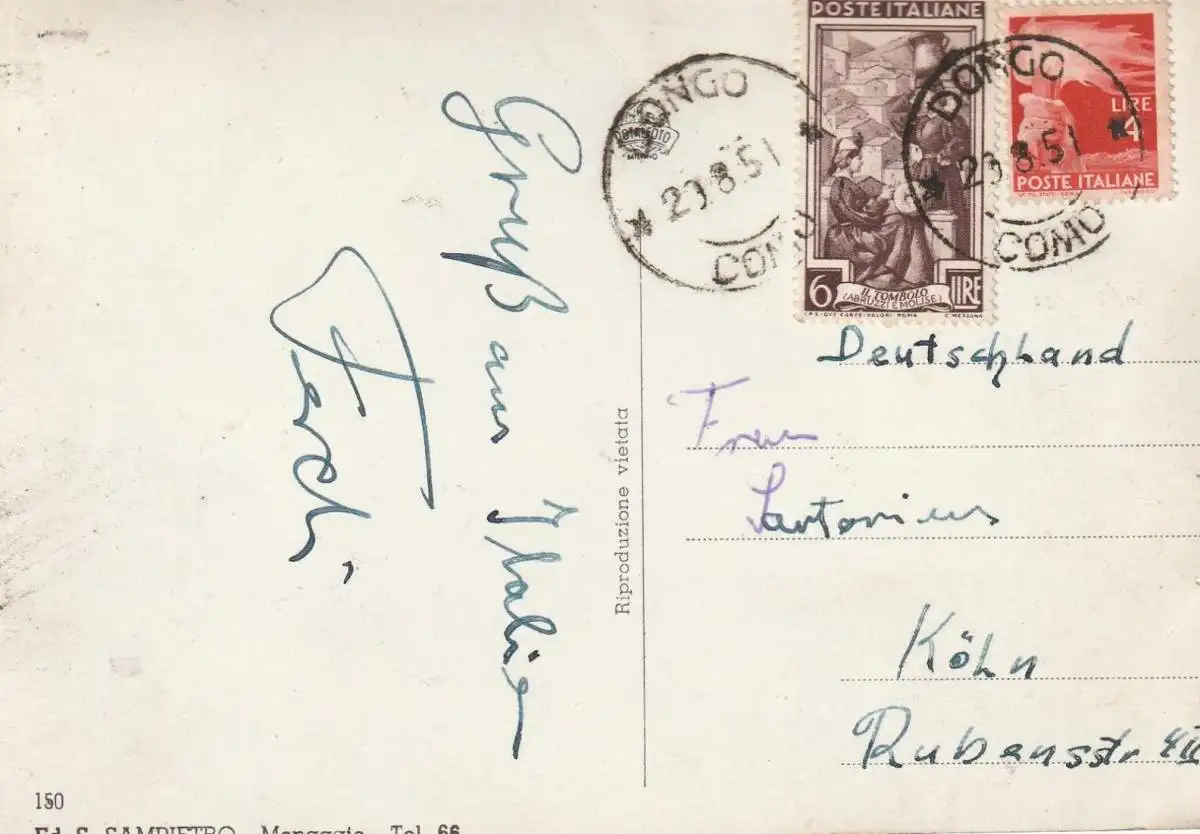 POSTE ITALIANE
6 LIRE
IL TOMBOLO
(ABRUZZI E MOLISE)
LIRE
4
POSTE ITALIANE
DONGO
8.51
COMO
DONGO
8.51
COMO
Gruß aus
Italien
Riproduzione vietata
Deutschland
Frau
Sartorius
Köhn
Rubensstr
150
Ed. S. SAMPIETRO - Menaggio - Tel. 66